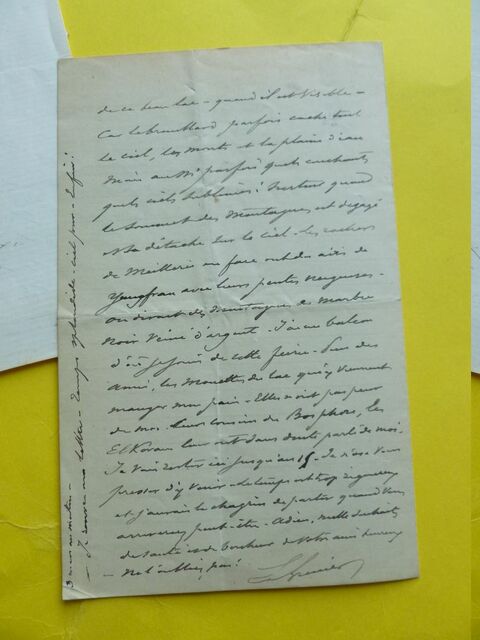 de ce beau lac – quand il est visible –
Car le brouillard parfois cache tout
le ciel, les monts et la plaine d'eau
Mais aussi parfois quels couchants
quels ciels sublimes! Surtout quand
le sommet des Montagnes est dégagé
et se détache sur le ciel – les rochers
de Meillerie en face ont des airs de
Yungfrau avec leurs pentes neigeuses –
on dirait des Montagnes de Marbre
Noir Veiné d'argent – J'ai un balcon
d'où je jouis de cette féerie –
Amie, les Mouettes du lac qui y viennent
manger mon pain – Elles n'ont pas peur
de moi – leurs cousins du Bosphore, les
leur ont sans doute parlé de moi –
Je vais rester ici jusqu'au 15 – Je n'ose vous
presser d'y venir – le temps est trop rigoureux
et j'aurais le chagrin de partir quand vous
arriverez peut-être – Adieu, mille souhaits
de santé et de bonheur de votre ami
– Ne l'oubliez pas!
– Je rouvre ma lettre – temps splendide – ciel pur –